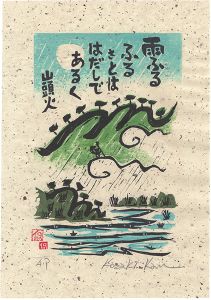 雨ふる
ふる
さとは
はだしで
あるく
山頭火